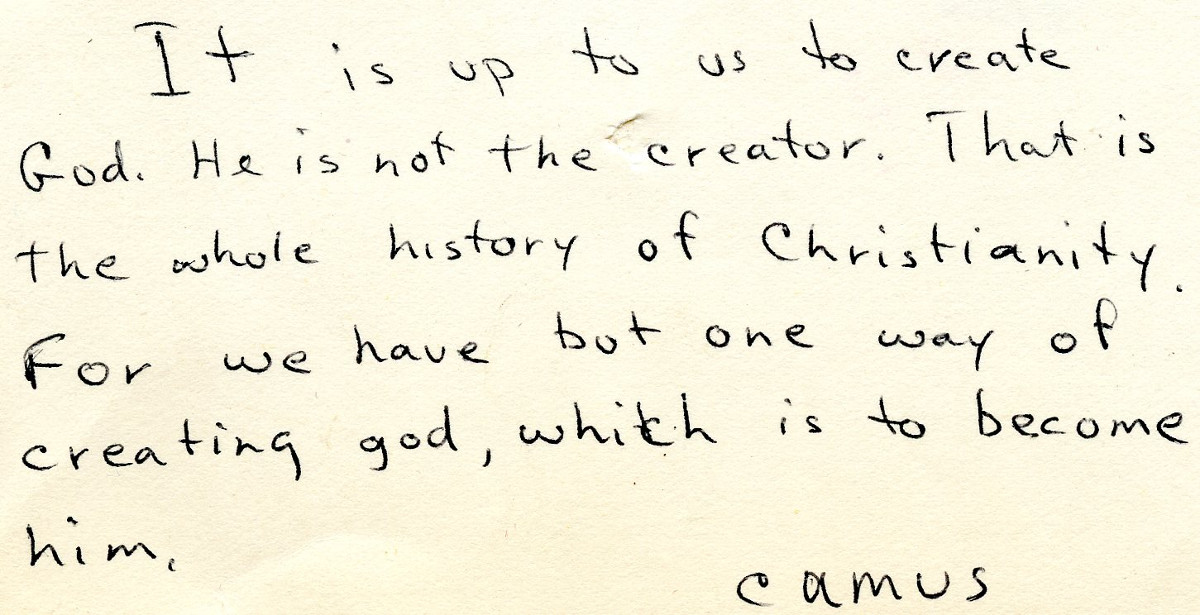 It is up to us to create
God. He is not the creator. That is
the whole history of Christianity.
For we have but one way of
creating god, which is to become
him.
camus